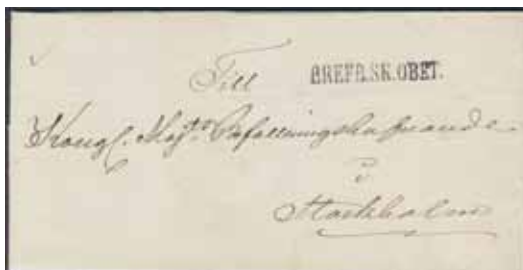 Till
BREFB.SK.OBET.
Kongl. Maj:ts Befallningshafvande
i
Stockholm